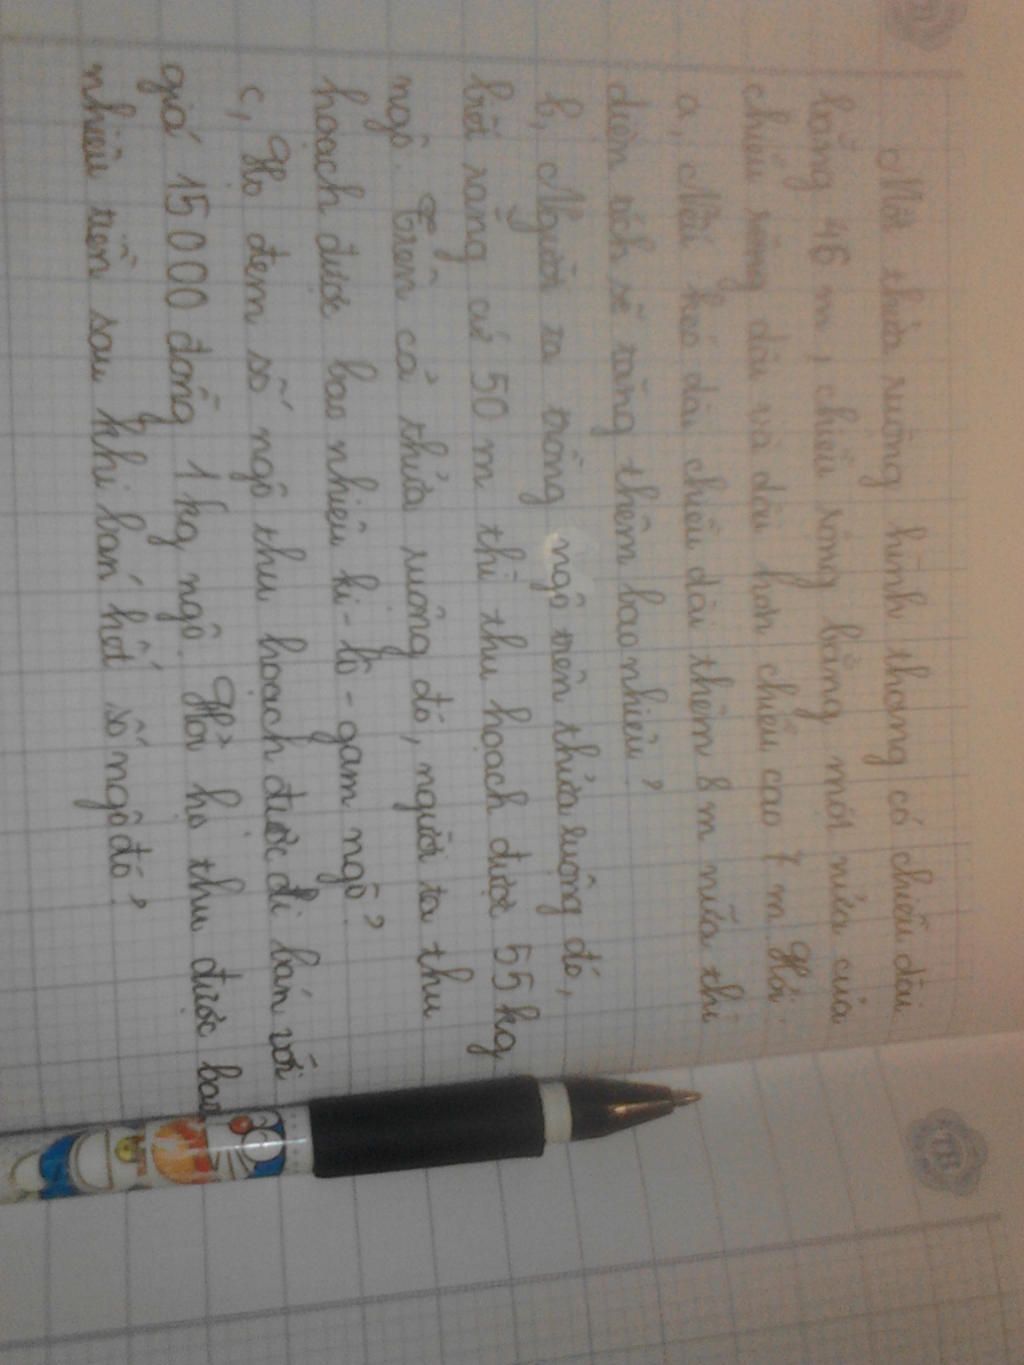 Một thửa ruộng hình thang có chiều dài
bằng 46 m, chiều rộng bằng một nửa của
chiều rộng dài và dài hơn chiều cao 7 m. Hỏi:
a, Nếu kéo dài chiều dài thêm 8 m nữa thì
diện tích sẽ tăng thêm bao nhiêu?
b, Người ta trồng ngô trên thửa ruộng đó,
biết rằng cứ 50 m thì thu hoạch được 55 kg
ngô. Trên cả thửa ruộng đó, người ta thu
hoạch được bao nhiêu ki-lô-gam ngô?
c, Họ đem số ngô thu hoạch được đi bán với
giá 15000 đồng 1 kg ngô. Hỏi họ thu được bao
nhiêu tiền sau khi bán hết số ngô đó?